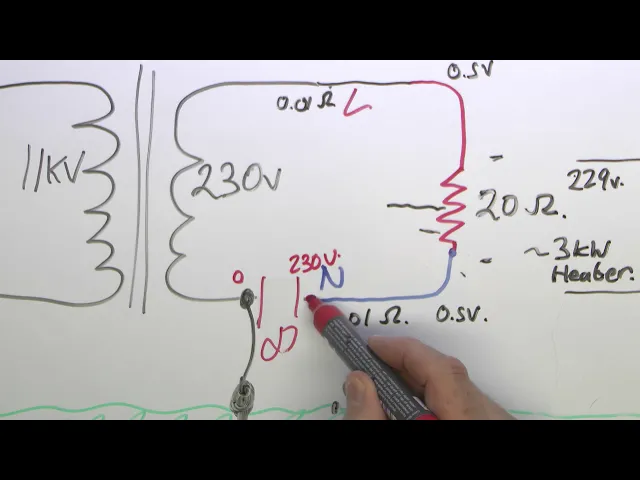 0.5V
0.01 Ω
L
11KV
230v
20 Ω.
229v.
~3kW
Heater.
0
230V.
N
∞
.01 Ω.
0.5V.